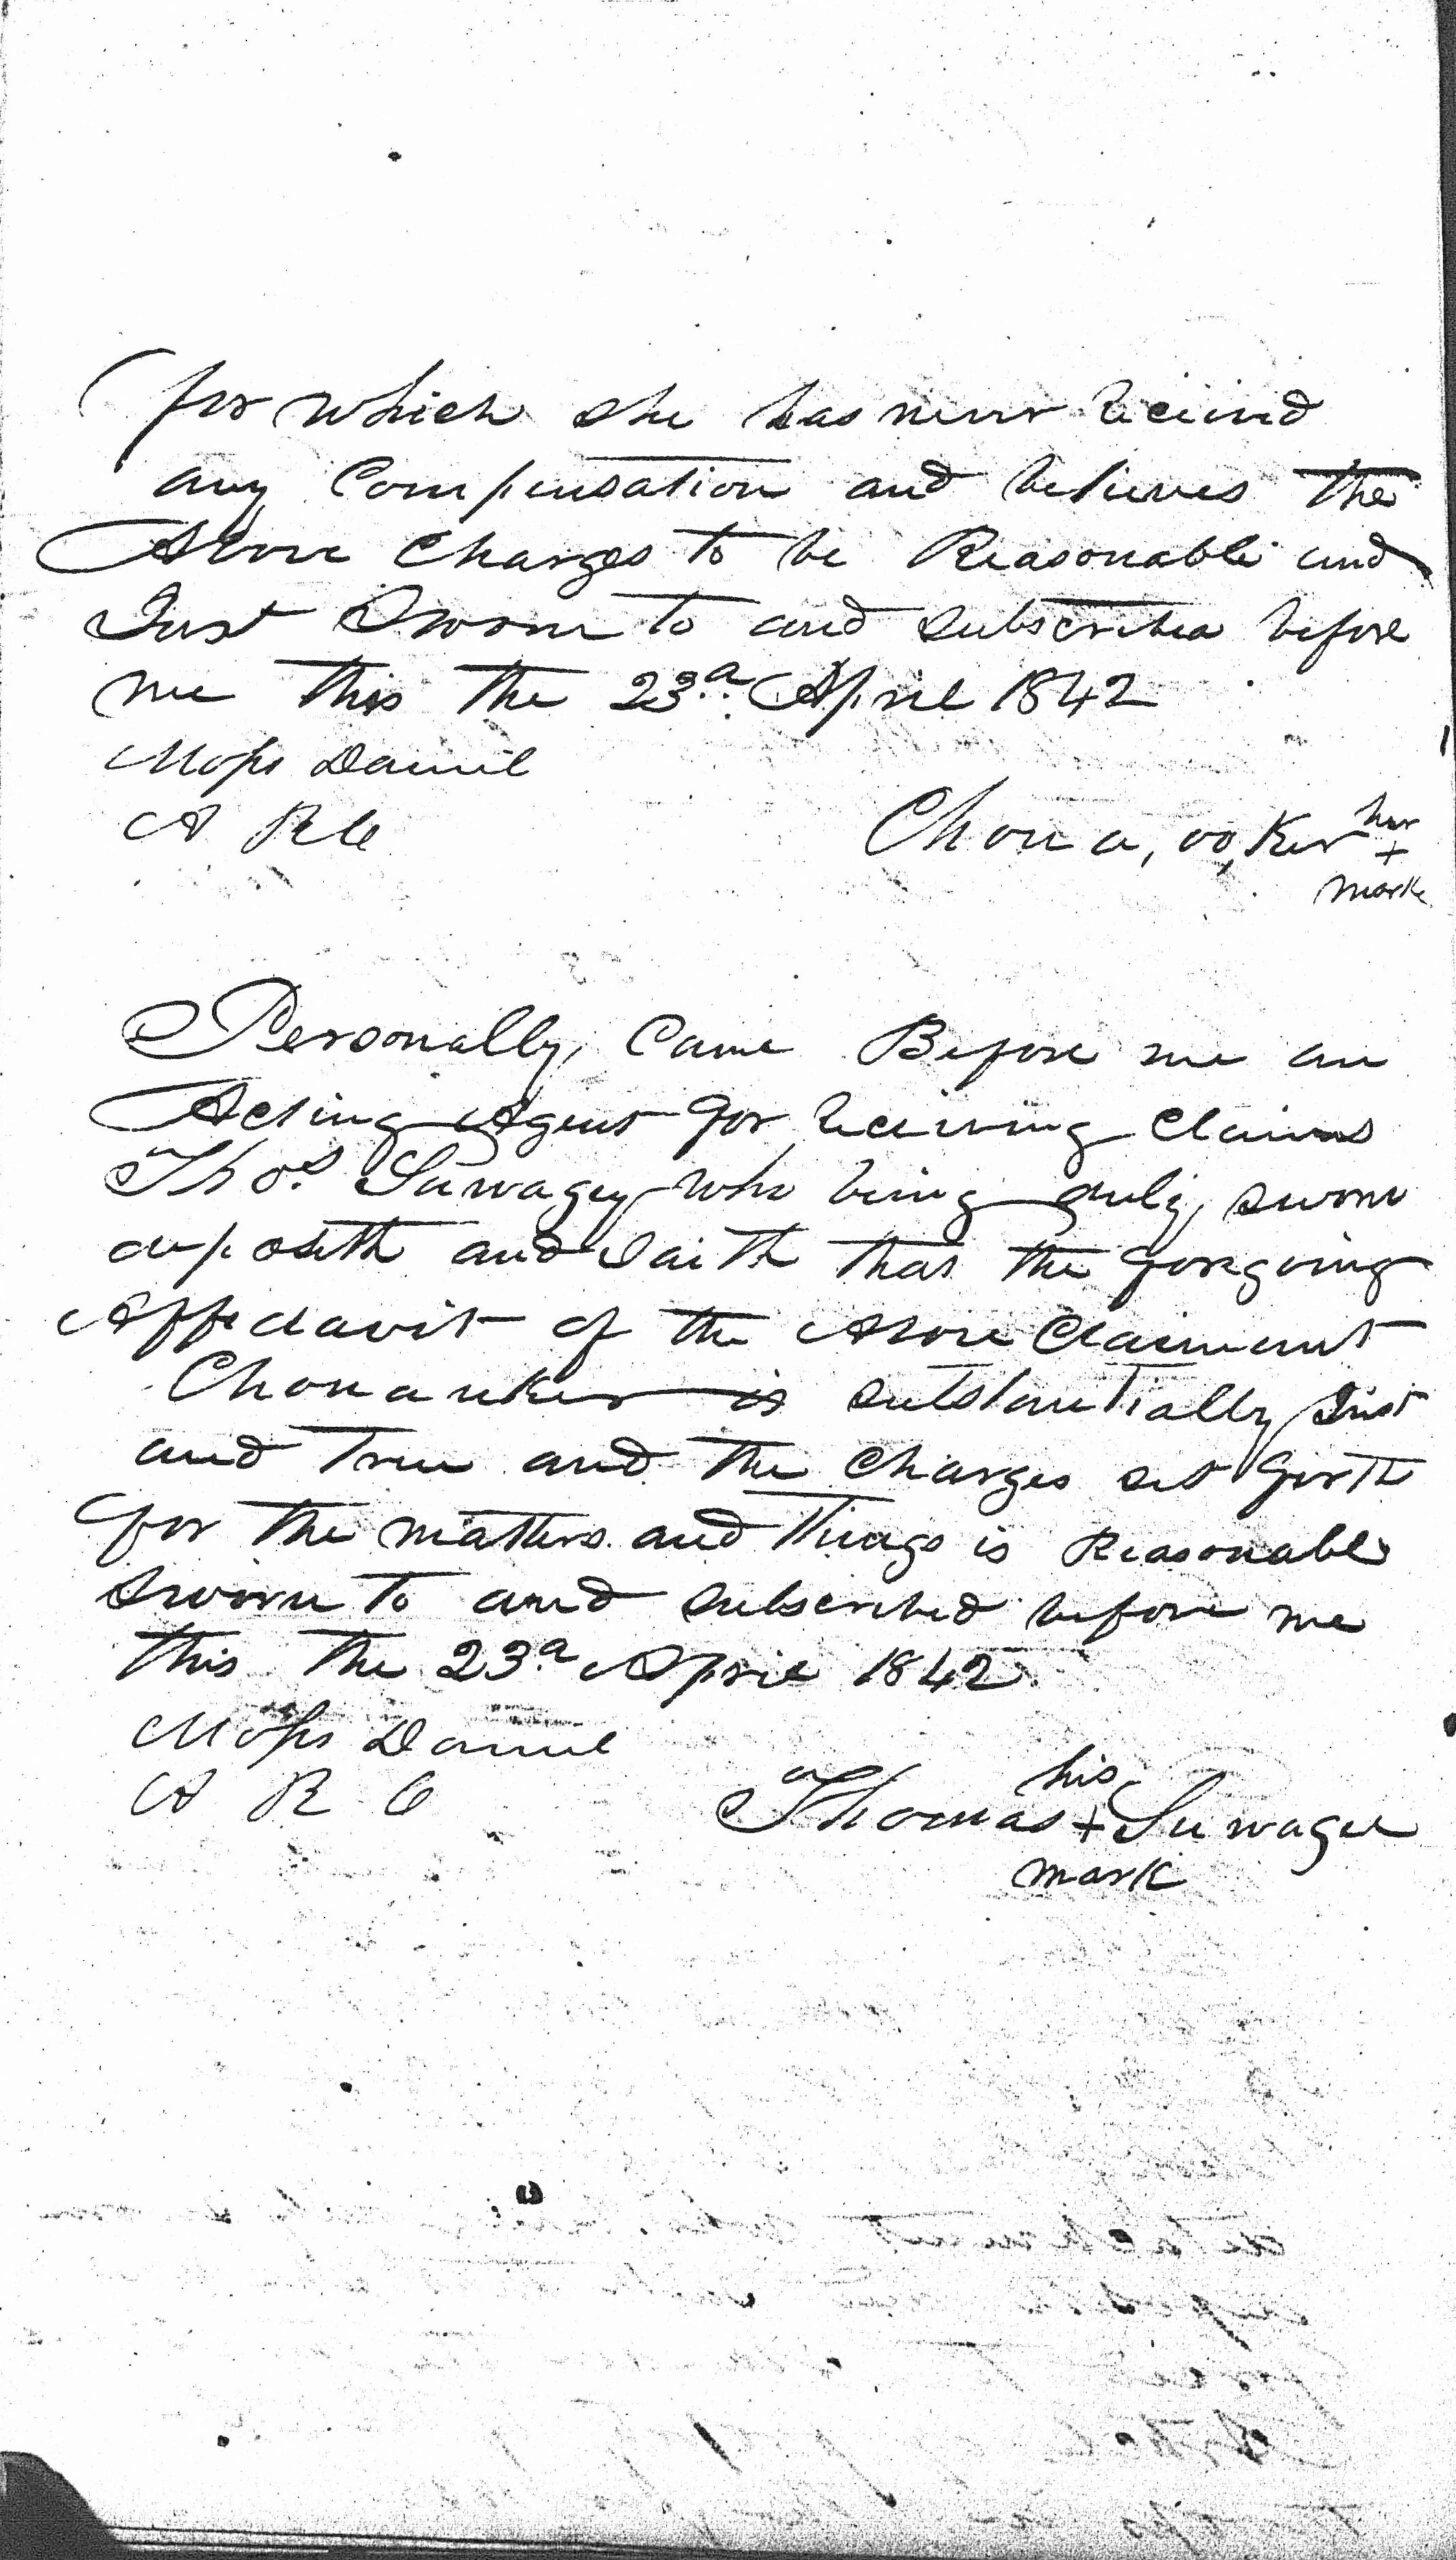 for which she has never Received
any Compensation and believes the
Above Charges to be Reasonable and
Just Sworn to and subscribed before
me this the 23d April 1842
Moss Daniel
A R C
Chou a, oo, Ker her
+
mark
Personally, Came Before me an
Acting Agent for Receiving Claims
Thos. Suwagey who being duly sworn
deposeth and saith that the foregoing
Affidavit of the Above Claimant
Chouauker is substantially Just
and True and the Charges set forth
for the matters and Things is Reasonable
Sworn to and subscribed before me
this the 23d April 1842
Moss Daniel
A R C
his
Thomas + Suwagee
mark